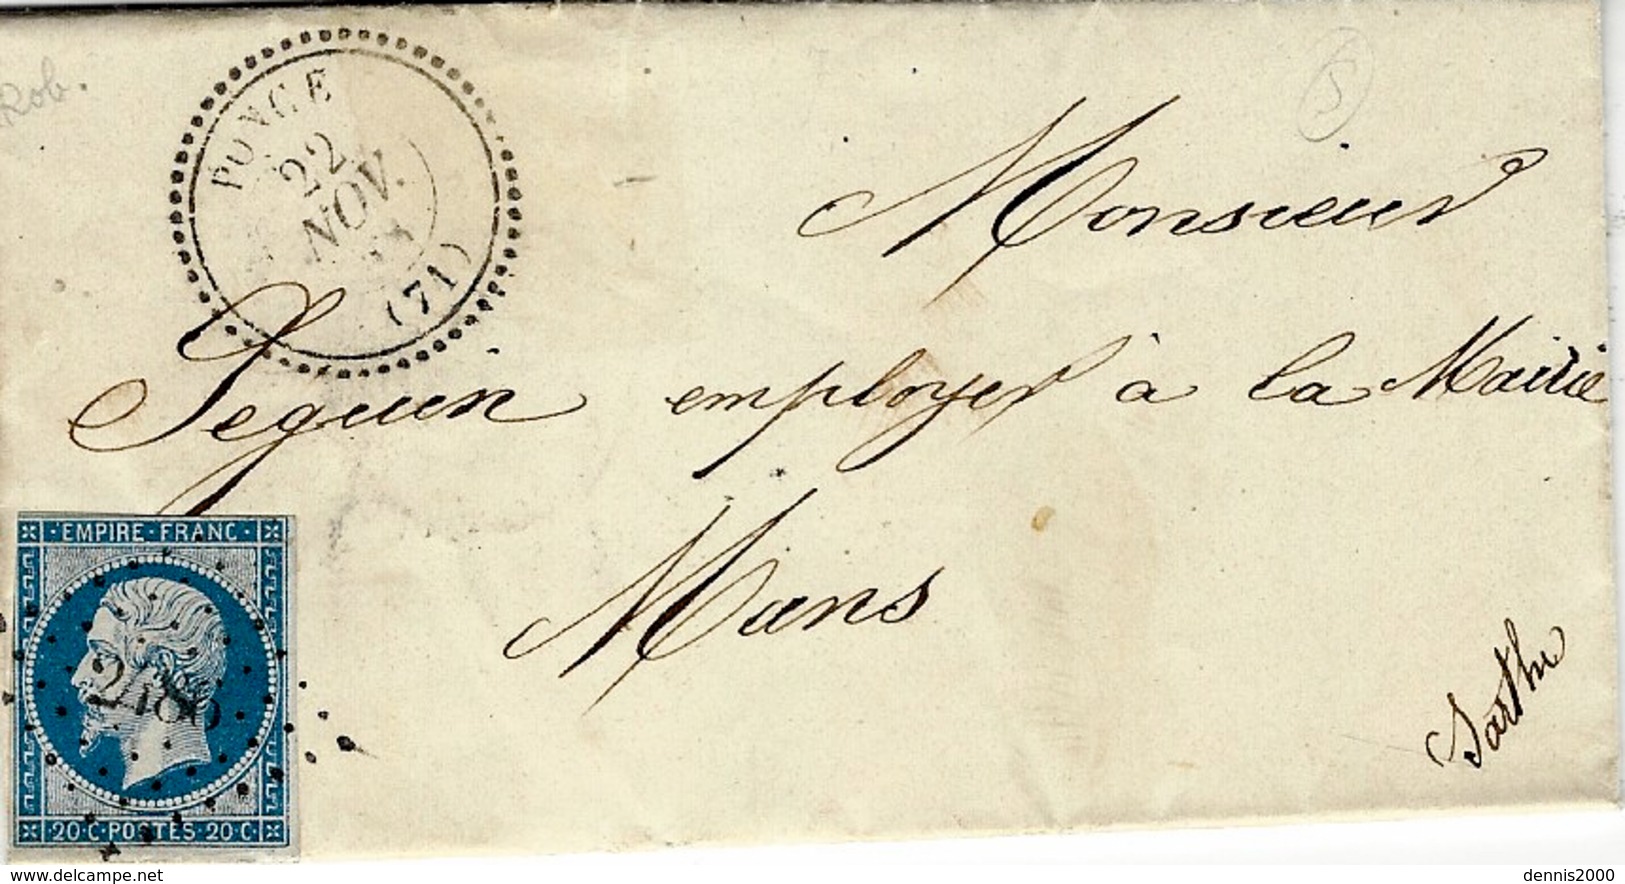 Rob.
PONCE
22
NOV.
(71)
S
Monsieur
Seguin employer à la Mairie
Mans
Sarthe
· EMPIRE · FRANC ·
2486
20 · C · POSTES · 20 · C
delcampe.net
dennis2000